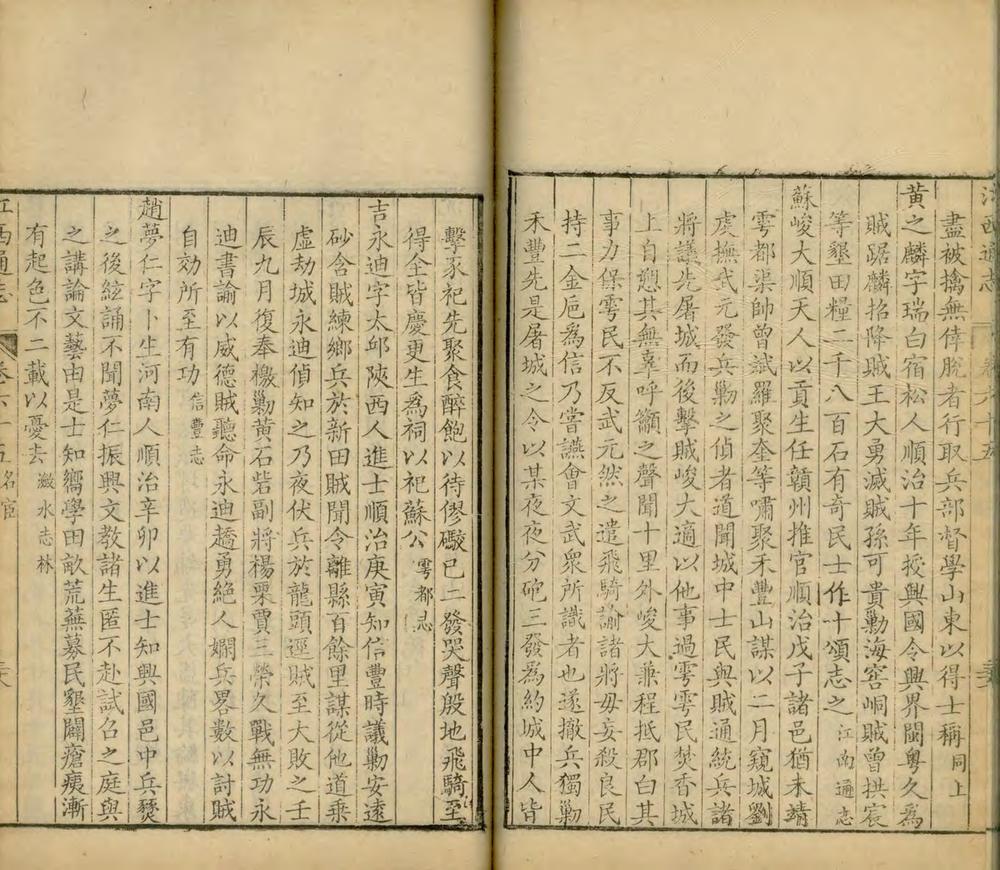 江西通志
盡被擒無倖脫者行取兵部督學山東以得士稱同上
黃之麟字瑞白宿松人順治十年授興國令興界閩粤久為
賊踞麟招降賊王大勇滅賊孫可貴勦海窖峒賊曾拱宸
等墾田糧二千八百石有奇民士作十頌志之江南通志
蘇峻大順天人以貢生任贛州推官順治戊子諸邑猶未靖
雩都渠帥曾試羅聚奎等嘯聚禾豐山謀以二月窺城劉
虔撫武元發兵勦之偵者道聞城中士民與賊通統兵諸
將議先屠城而後擊賊峻大適以他事過雩雩民焚香城
上自愬其無辜呼籲之聲聞十里外峻大兼程抵郡白其
事力保雩民不反武元然之遣飛騎諭諸將毋妄殺良民
持二金巵為信乃嘗讌會文武衆所識者也遂撤兵獨勦
禾豐先是屠城之令以某夜夜分砲三發為約城中人皆
擊豕祀先聚食醉飽以待僇礮已二發哭聲殷地飛騎至
得全皆慶更生為祠以祀蘇公雩都志
吉永迪字太邱陝西人進士順治庚寅知信豐時議勦安遠
砂含賊練鄉兵於新田賊聞令離縣百餘里謀從他道乗
虛劫城永迪偵知之乃夜伏兵於龍頭逕賊至大敗之壬
辰九月復奉檄勦黃石砦副將楊栗賈三榮久戰無功永
迪書諭以威德賊聽命永迪趫勇絶人嫻兵畧數以討賊
自効所至有功信豐志
趙夢仁字卜生河南人順治辛卯以進士知興國邑中兵燹
之後絃誦不聞夢仁振興文教諸生匿不赴試召之庭與
之講論文藝由是士知嚮學田畝荒蕪募民墾闢瘡痍漸
有起色不二載以憂去瀲水志林
江西通志 卷六十五 名宦